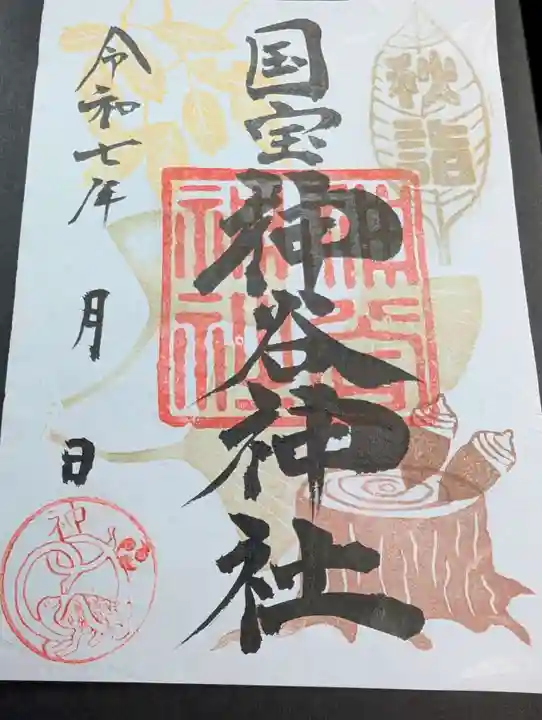 秋詣
国宝神谷神社
令和七年
月
日
神